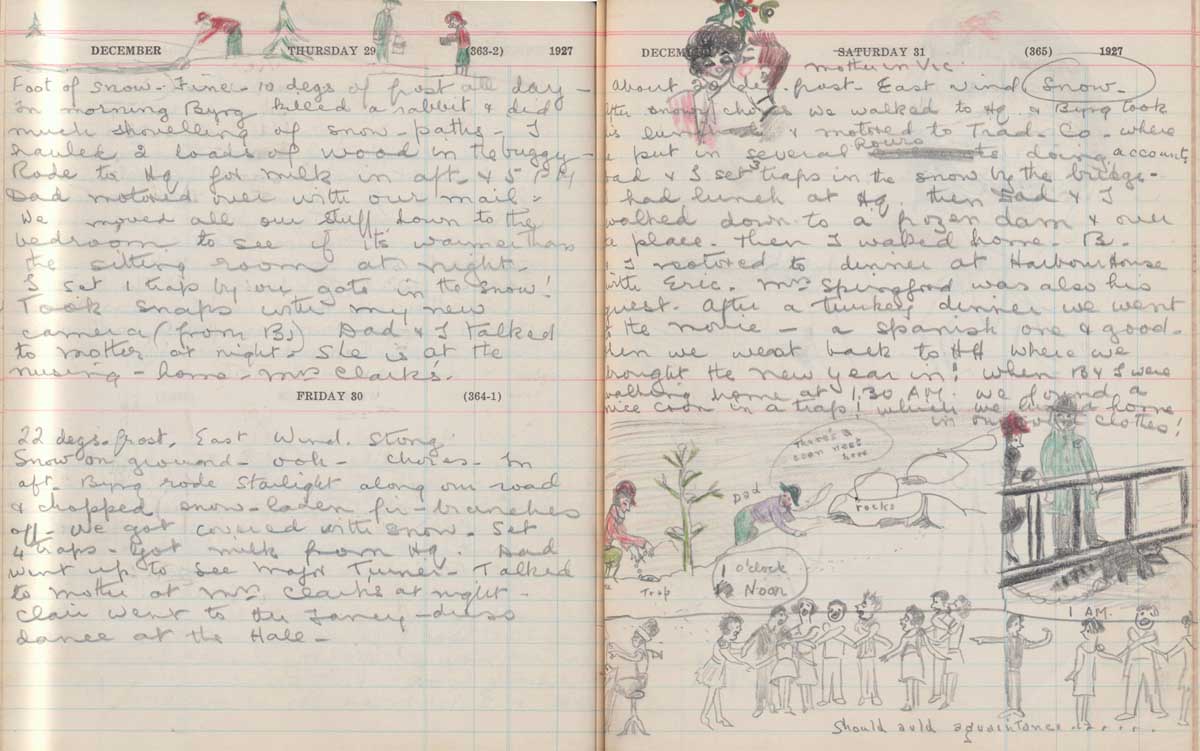 DECEMBER THURSDAY 29 (363-2) 1927
Foot of snow - Fine - 10 degs of frost all day -
In morning Byng killed a rabbit & did
much shovelling of snow - paths - I
hauled 2 loads of wood in the buggy -
Rode to Hq for milk in aft - & 5 P.M
Dad motored over with our mail -
We moved all our stuff down to the
bedroom to see if its warmer than
the sitting room at night -
I set 1 trap by our gate in the snow!
Took snaps with my new
camera (from B) Dad & I talked
to mother at night - She is at the
nursing - home - Mrs Clark's.
FRIDAY 30 (364-1)
22 degs. frost. East Wind. Stong
Snow on ground - ook - chores - In
aft. Byng rode Starlight along our road
& chopped snow-laden fir-branches
off - We got covered with snow. Set
4 traps - Got milk from Hq. Dad
went up to see Major Turner - Talked
to mother at Mrs. Clarks at night -
Clair went to the Fancy-dress
dance at the Hall -
DECEM SATURDAY 31 (365) 1927
mother in Vic
About 20 de frost - East wind Snow -
chores we walked to Hq & Byng took
& motored to Trad. Co - where
put in several hours doing accounts
ad & I set 3 traps in the snow by the bridge -
had lunch at Hq. then Dad & I
walked down to a frozen dam & over
a place - Then I walked home - B.
& I motored to dinner at Harbour House
with Eric. Mrs Springford was also his
guest. After a turkey dinner we went
the movie - a spanish one & good -
hen we went back to HH where we
brought the new year in! When B & I were
walking home at 1.30 AM. we found a
nice coon in a trap! which we home
in our clothes!
There's a
coon nest
here
Dad
rocks
Trap
1 o'clock
Noon
1 AM.
Should auld aquaintance . . . . .